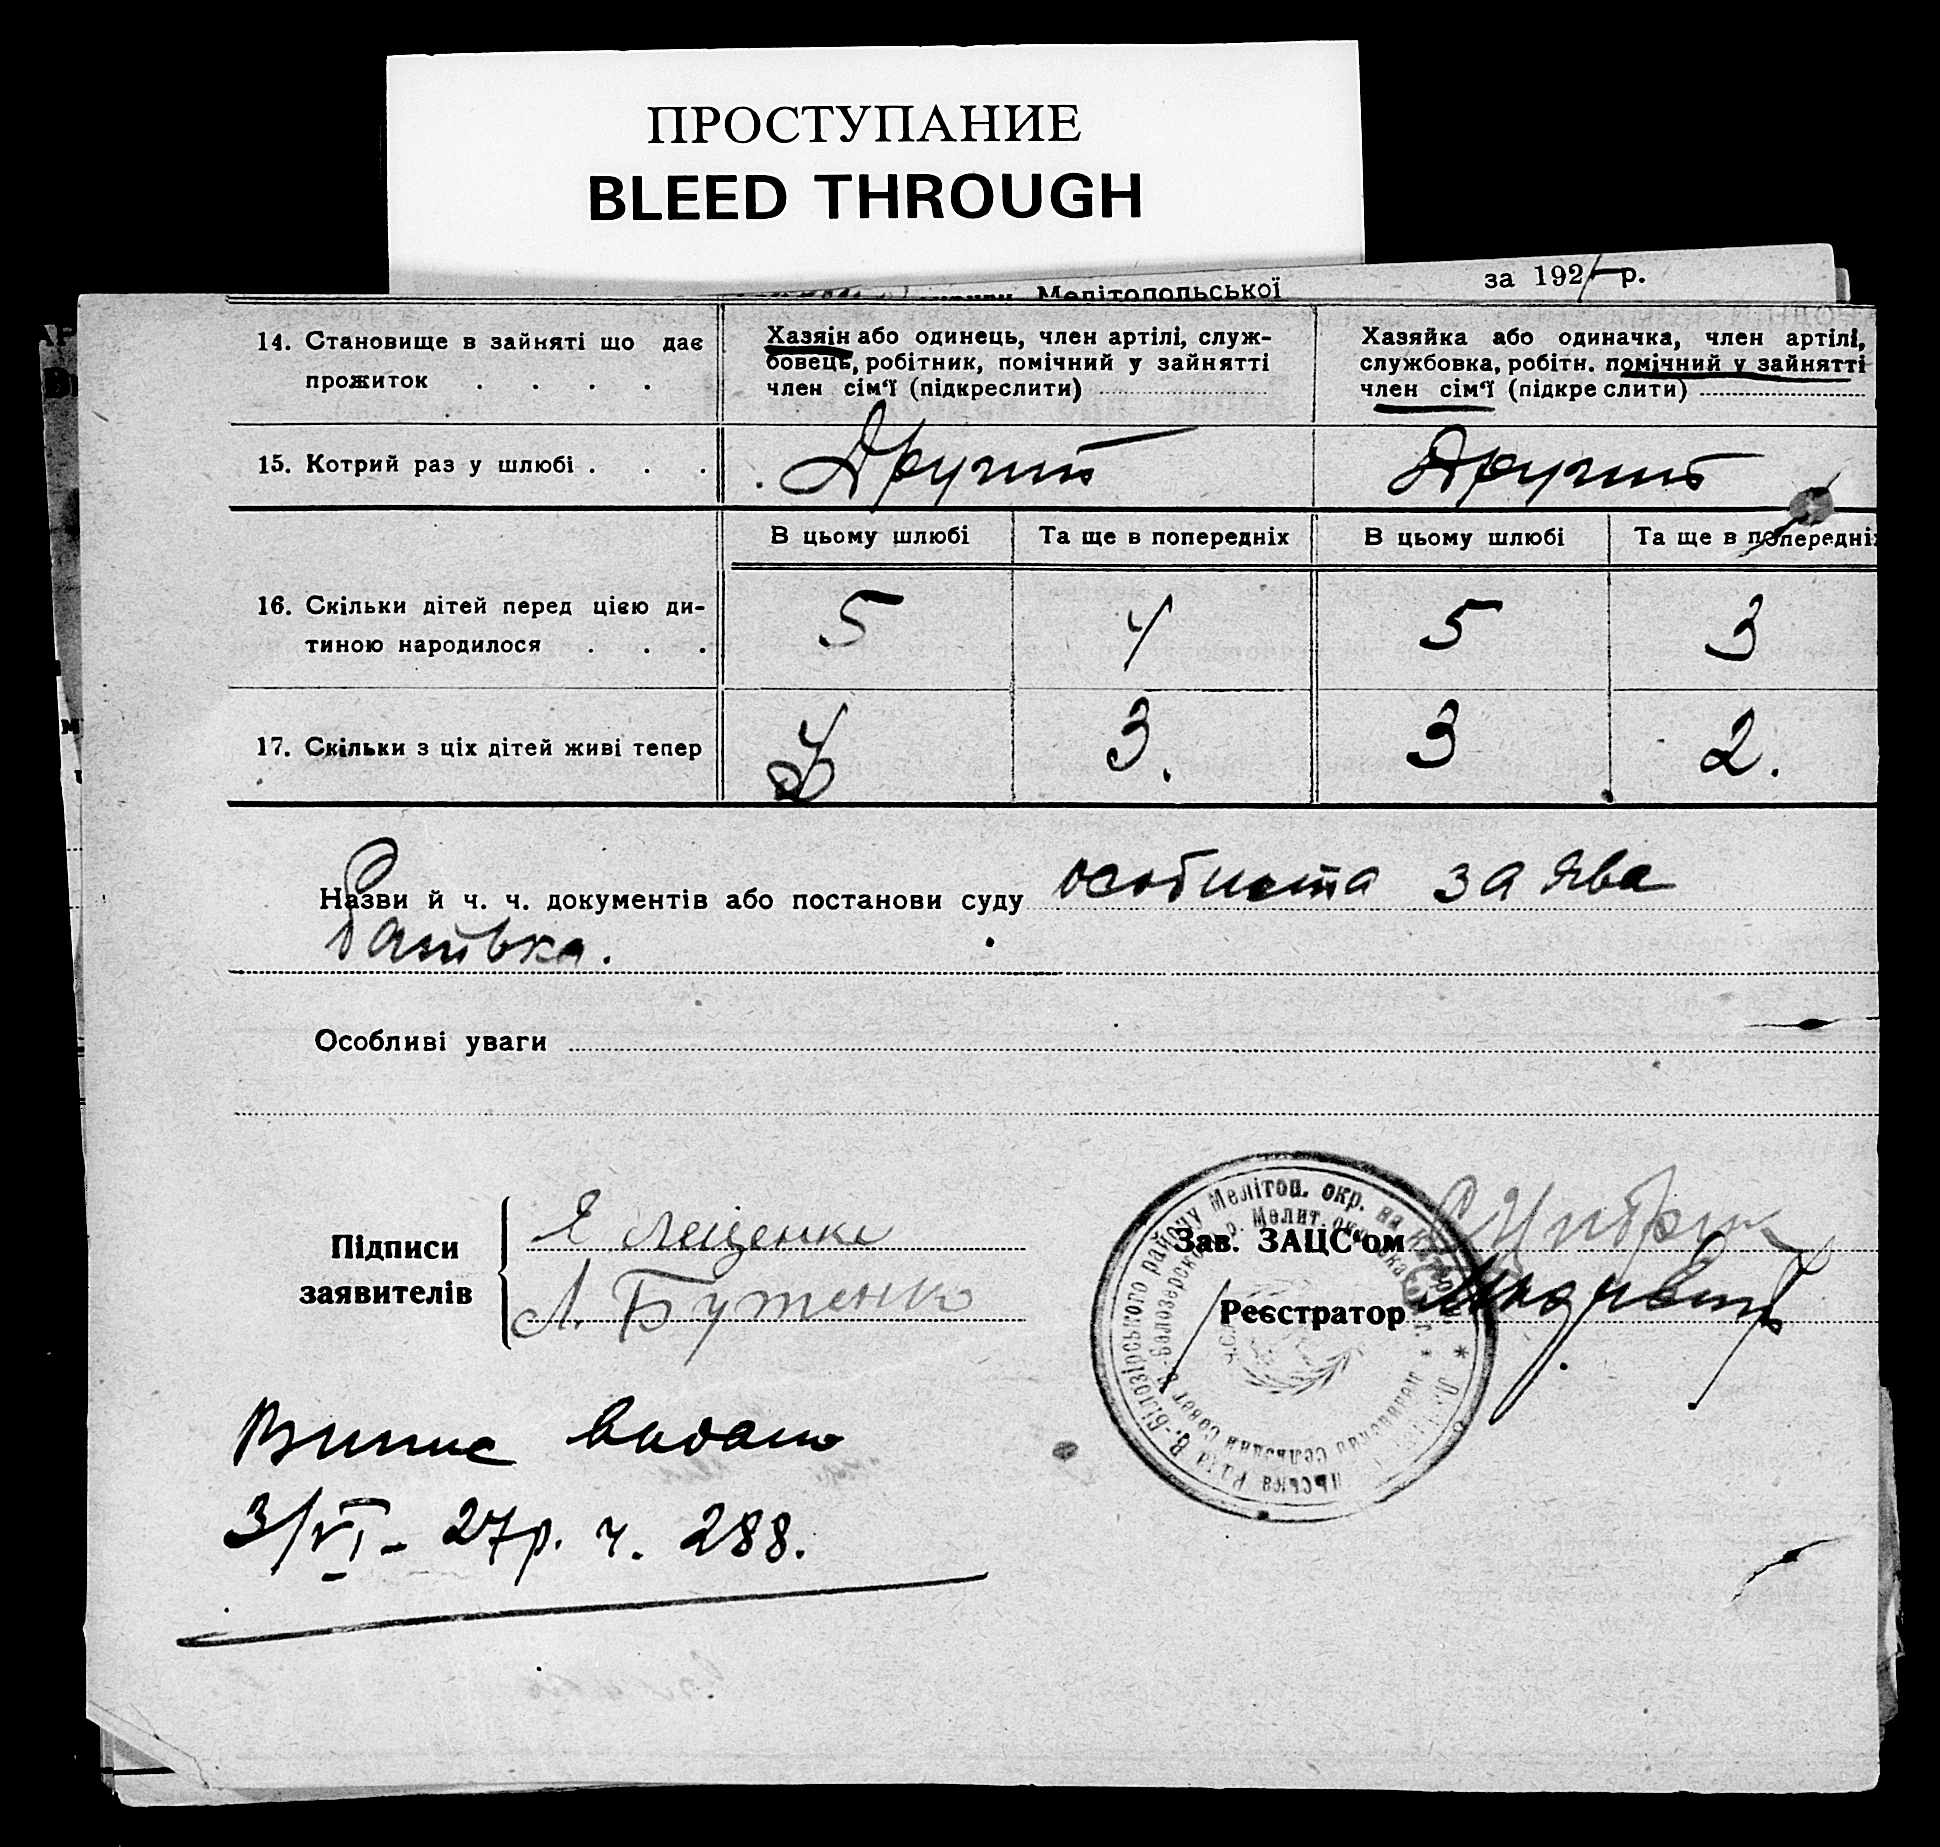 ПРОСТУПАНИЕ
BLEED THROUGH
за 192 р.
Мелітопольської
14. Становище в зайняті що дає прожиток . . . .
Хазяін або одинець, член артілі, служ-
бовець, робітник, помічний у зайнятті
член сім'ї (підкреслити)
Хазяйка або одиначка, член артілі,
службовка, робітн. помічний у зайнятті
член сім'ї (підкреслити)
15. Котрий раз у шлюбі . . .
Другий
Другий
В цьому шлюбі
Та ще в попередніх
В цьому шлюбі
Та ще в попередніх
16. Скільки дітей перед цією ди-
тиною народилося . . .
5
4
5
3
17. Скільки з ціх дітей живі тепер
3.
3
2.
Назви й ч. ч. документів або постанови суду особиста заява
батька.
Особливі уваги
Підписи
заявителів
Я Лещенко
Л. Бутенко
Зав. ЗАЦС'ом
Реєстратор
В.-Білозірського району Мелітоп. окр.
Випис видано
3/VI - 27р. ч. 288.